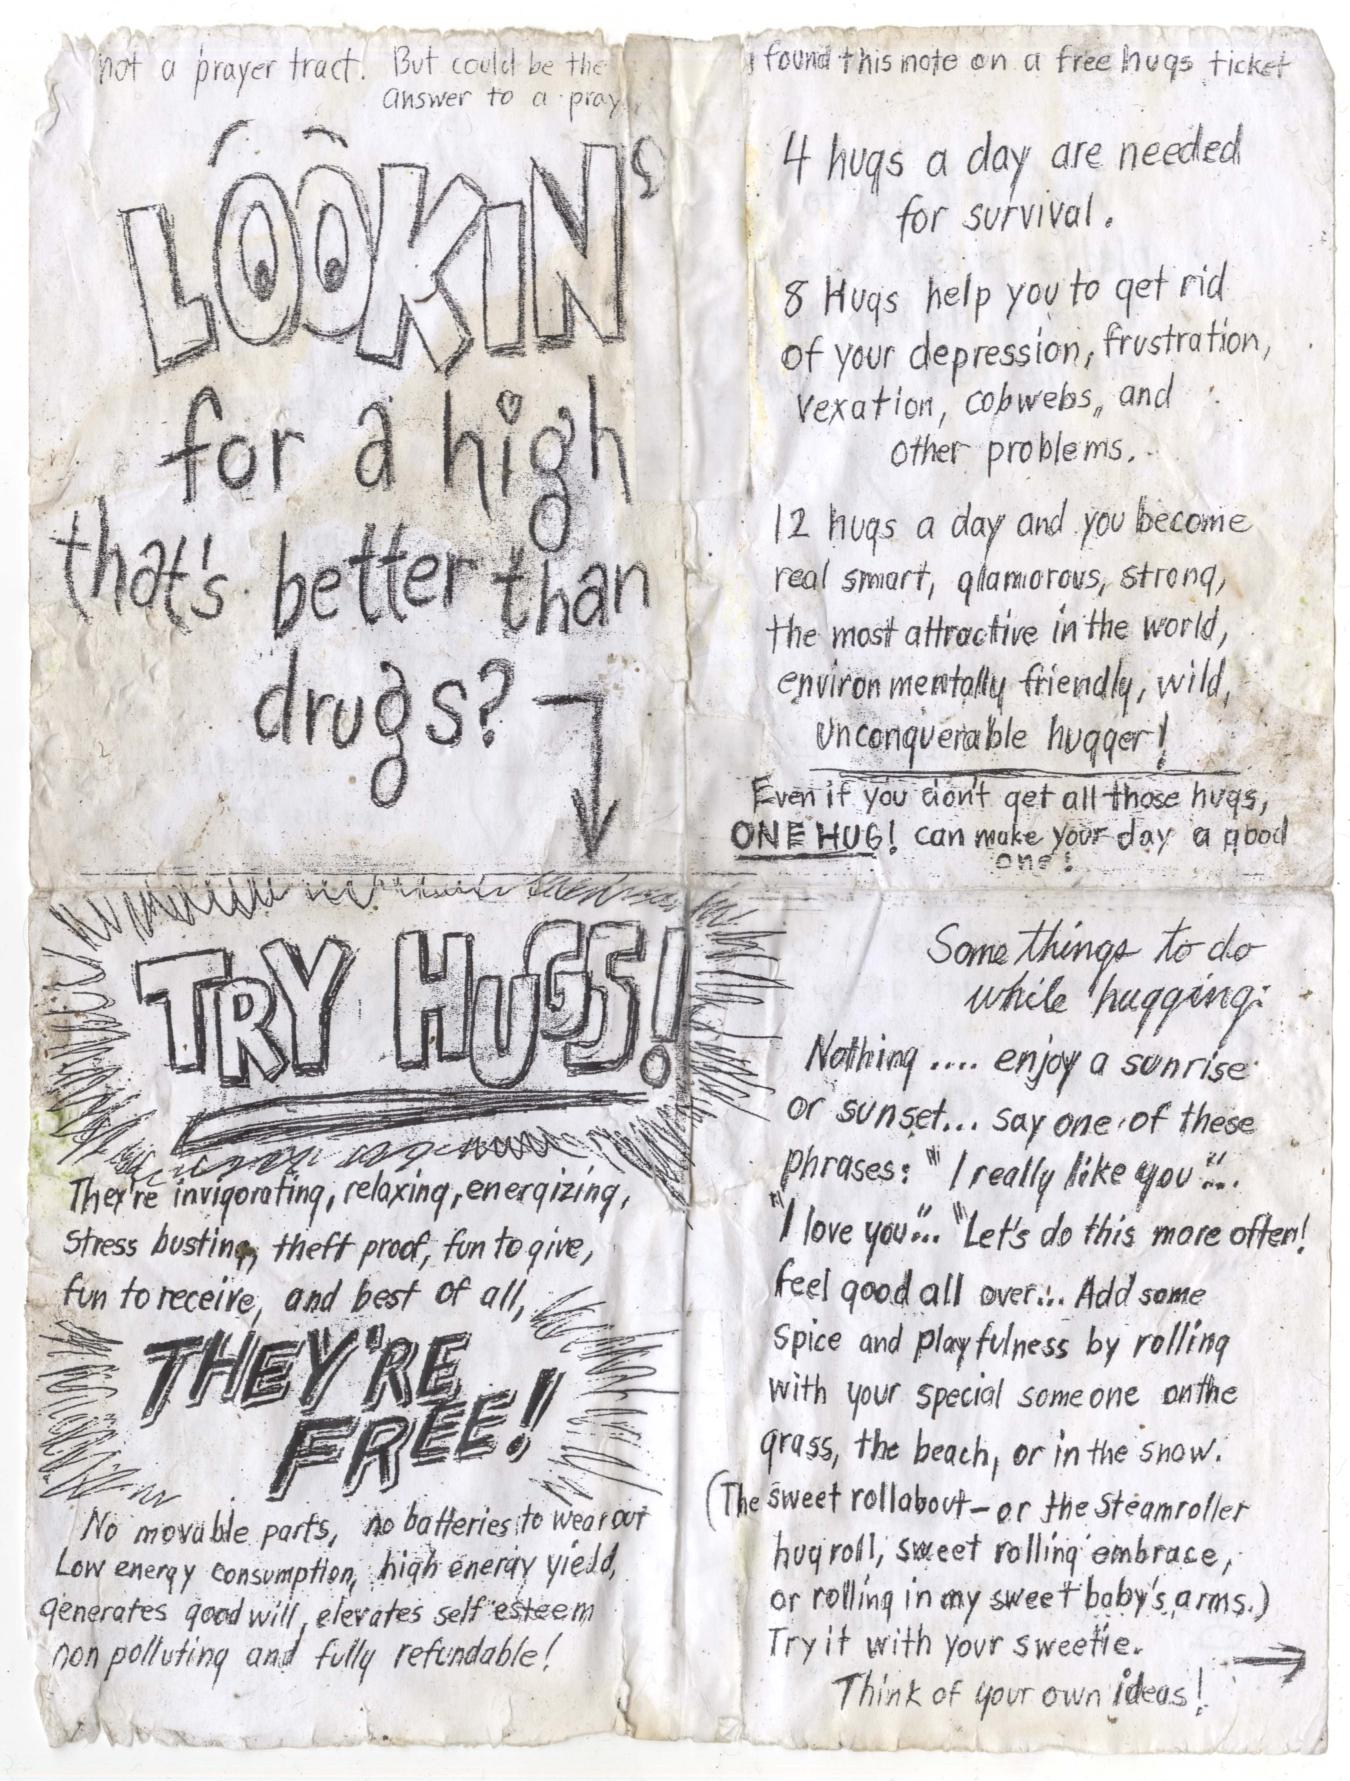 not a prayer tract. But could be the
answer to a pray
LOOKIN'
for a high
that's better than
drugs?
TRY HUGS!
They're invigorating, relaxing, energizing,
stress busting, theft proof, fun to give,
fun to receive, and best of all,
THEY'RE
FREE!
No movable parts, no batteries to wear out
Low energy consumption, high energy yield,
generates good will, elevates self esteem
non polluting and fully refundable!
I found this note on a free hugs ticket
4 hugs a day are needed
for survival.
8 Hugs help you to get rid
of your depression, frustration,
vexation, cobwebs, and
other problems.
12 hugs a day and you become
real smart, glamorous, strong,
the most attractive in the world,
environmentally friendly, wild,
unconquerable hugger!
Even if you don't get all those hugs,
ONE HUG! can make your day a good
one!
Some things to do
while hugging:
Nothing .... enjoy a sunrise
or sunset... say one of these
phrases: "I really like you"...
"I love you"... "Let's do this more often!
feel good all over... Add some
spice and playfulness by rolling
with your special someone on the
grass, the beach, or in the snow.
(The sweet rollabout - or the steamroller
hug roll, sweet rolling embrace,
or rolling in my sweet baby's arms.)
Try it with your sweetie.
Think of your own ideas!